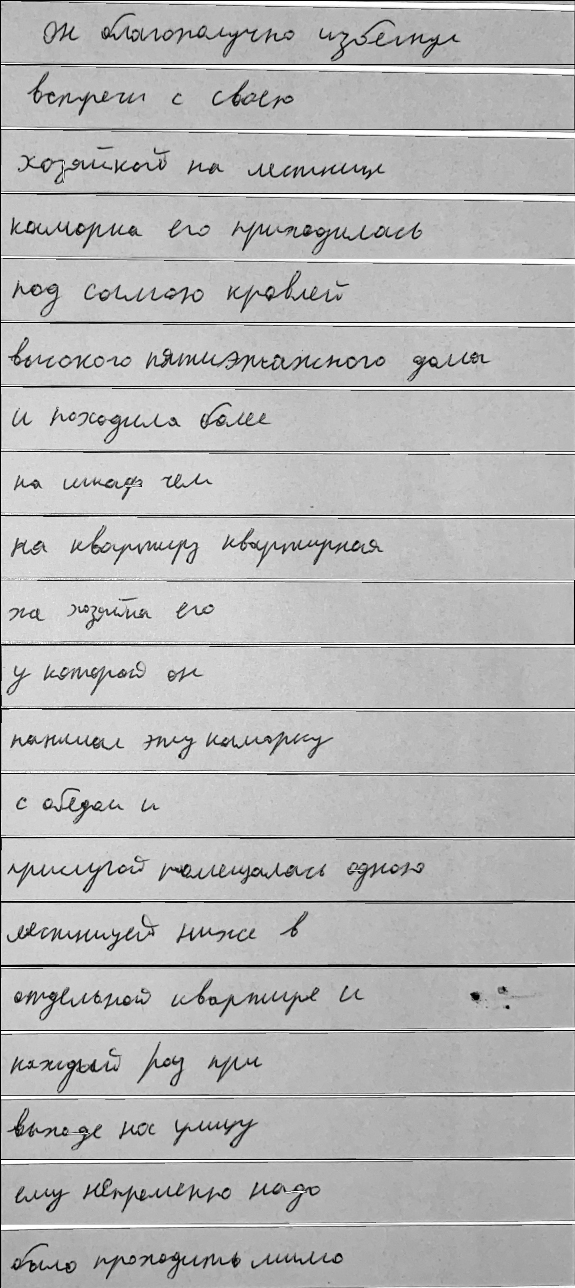 Он благополучно избегнул
встречи с своею
хозяйкой на лестнице
каморка его приходилась
под самою кровлей
высокого пятиэтажного дома
и походила более
на шкаф чем
на квартиру квартирная
же хозяйка его
у которой он
нанимал эту каморку
с обедом и
прислугой помещалась одною
лестницей ниже в
отдельной квартире и
каждый раз при
выходе на улицу
ему непременно надо
было проходить мимо